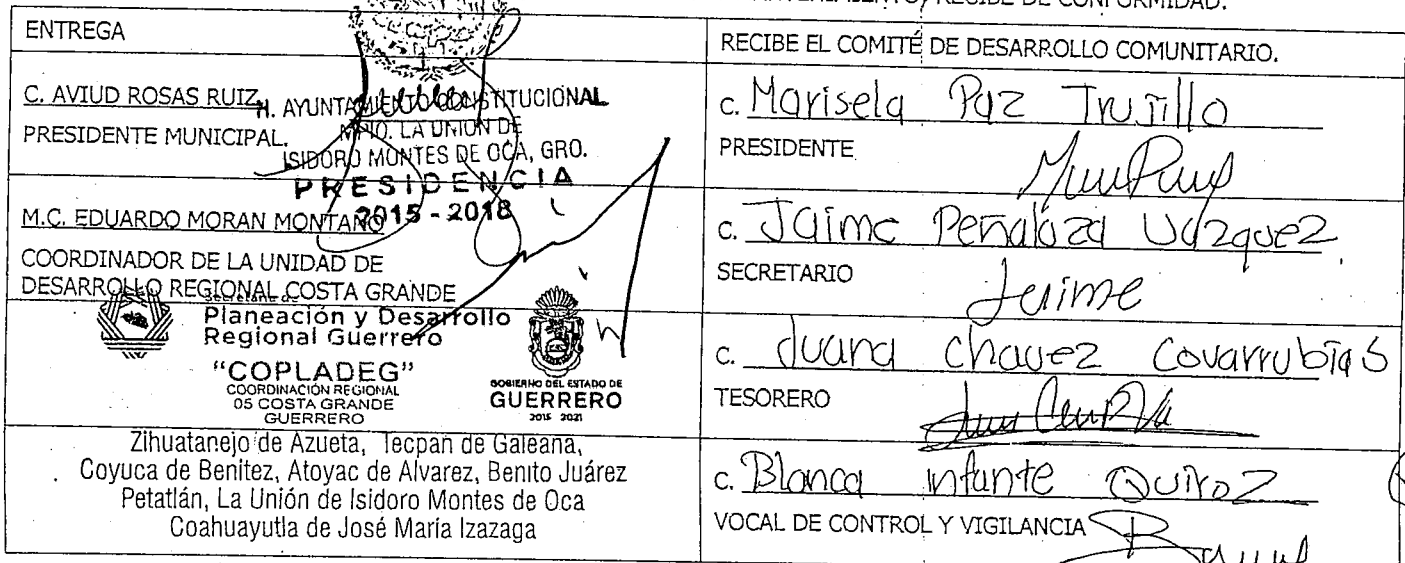 RECIBE DE CONFORMIDAD.
ENTREGA
C. AVIUD ROSAS RUIZ
PRESIDENTE MUNICIPAL.
H. AYUNTAMIENTO CONSTITUCIONAL
MPIO. LA UNION DE
ISIDORO MONTES DE OCA, GRO.
PRESIDENCIA
2015 - 2018
M.C. EDUARDO MORAN MONTAÑO
COORDINADOR DE LA UNIDAD DE
DESARROLLO REGIONAL COSTA GRANDE
Secretaría de
Planeación y Desarrollo
Regional Guerrero
"COPLADEG"
COORDINACIÓN REGIONAL
05 COSTA GRANDE
GUERRERO
GOBIERNO DEL ESTADO DE
GUERRERO
2015 2021
Zihuatanejo de Azueta, Tecpan de Galeana,
Coyuca de Benitez, Atoyac de Alvarez, Benito Juárez
Petatlán, La Unión de Isidoro Montes de Oca
Coahuayutla de José María Izazaga
RECIBE EL COMITÉ DE DESARROLLO COMUNITARIO.
C. Marisela Paz Trujillo
PRESIDENTE
C. Jaime Peñaloza Vazquez
SECRETARIO
Jaime
C. Juana Chavez Covarrubias
TESORERO
C. Blanca infante Quiroz
VOCAL DE CONTROL Y VIGILANCIA